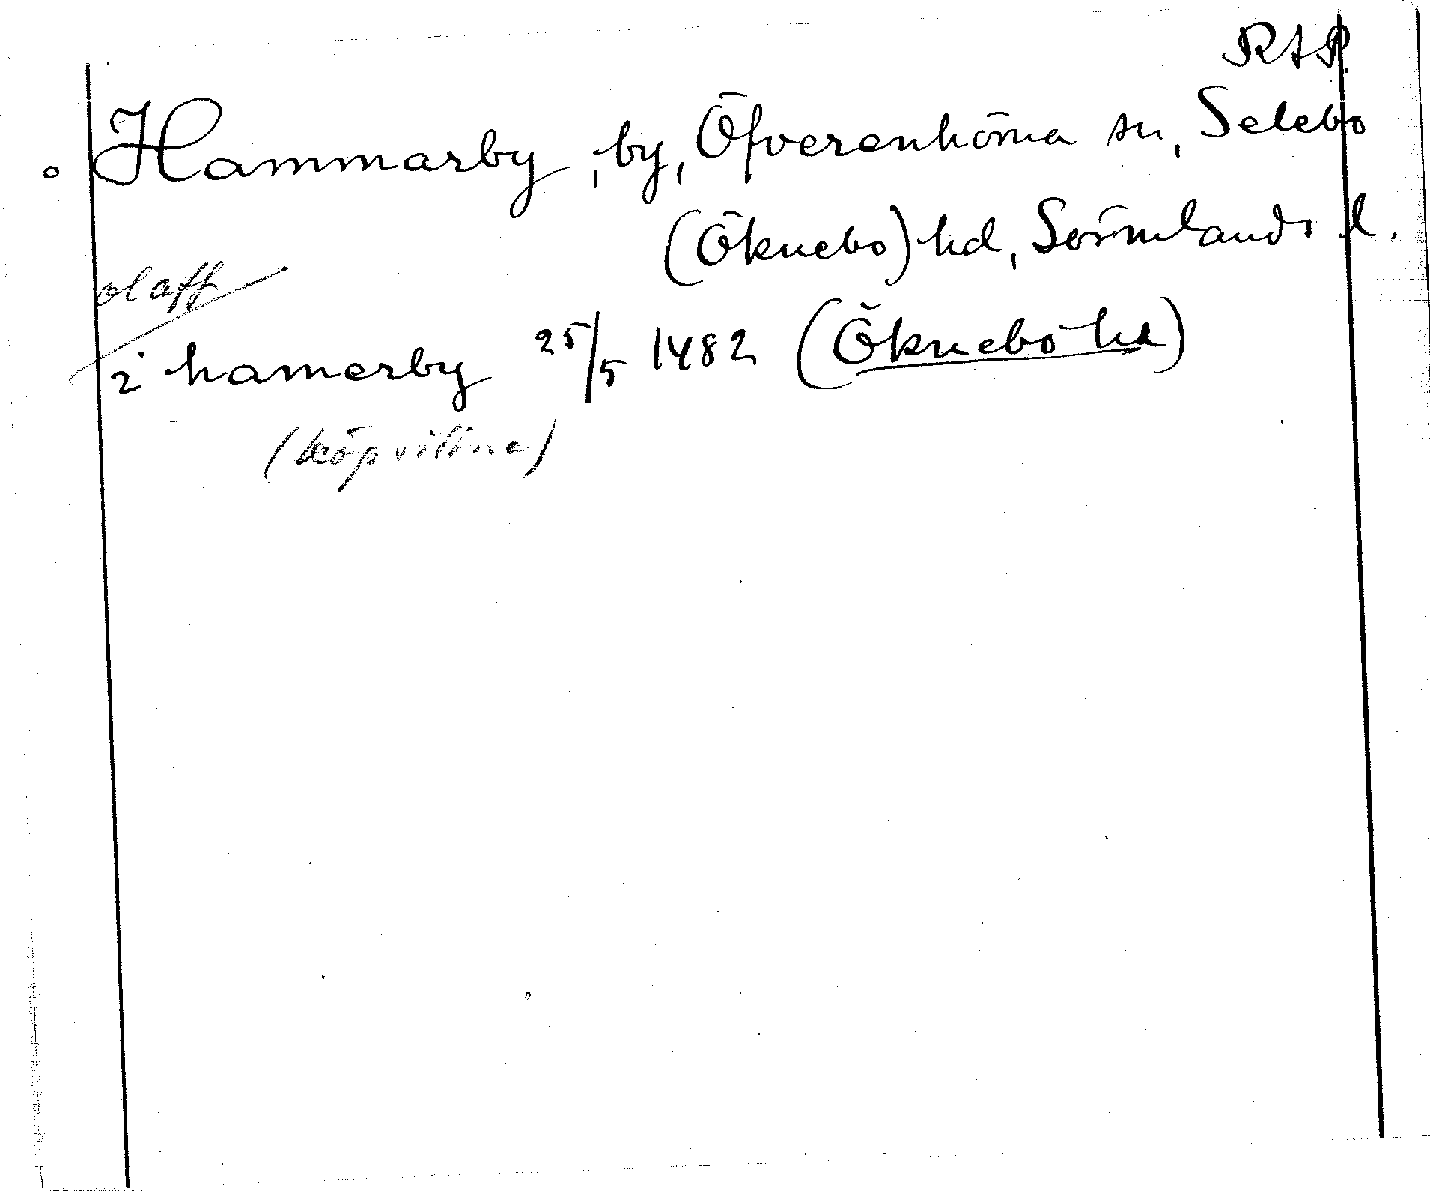 RAP.
Hammarby, by, Öfverenhörna sn, Selebo
(Öknebo) hd, Sörmlands l.
olaff
i hamerby 25/5 1482 (Öknebo hd)
(köpvittne)